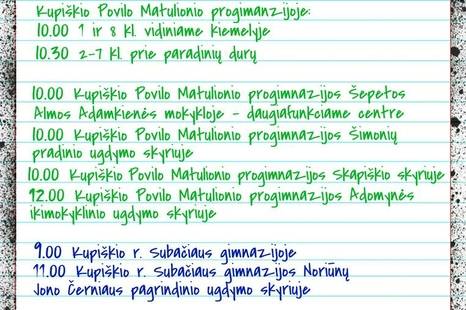 Kupiškio Povilo Matulionio progimanzijoje:
10.00 1 ir 8 kl. vidiniame kiemelyje
10.30 2-7 kl. prie paradinių durų
10.00 Kupiškio Povilo Matulionio progimnazijos Šepetos
Almos Adamkienės mokykloje - daugiafunkciame centre
10.00 Kupiškio Povilo Matulionio progimnazijos Šimonių
pradinio ugdymo skyriuje
10.00 Kupiškio Povilo Matulionio progimnazijos Skapiškio skyriuje
12.00 Kupiškio Povilo Matulionio progimnazijos Adomynės
ikimokyklinio ugdymo skyriuje
9.00 Kupiškio r. Subačiaus gimnazijoje
11.00 Kupiškio r. Subačiaus gimnazijos Noriūnų
Jono Černiaus pagrindinio ugdymo skyriuje